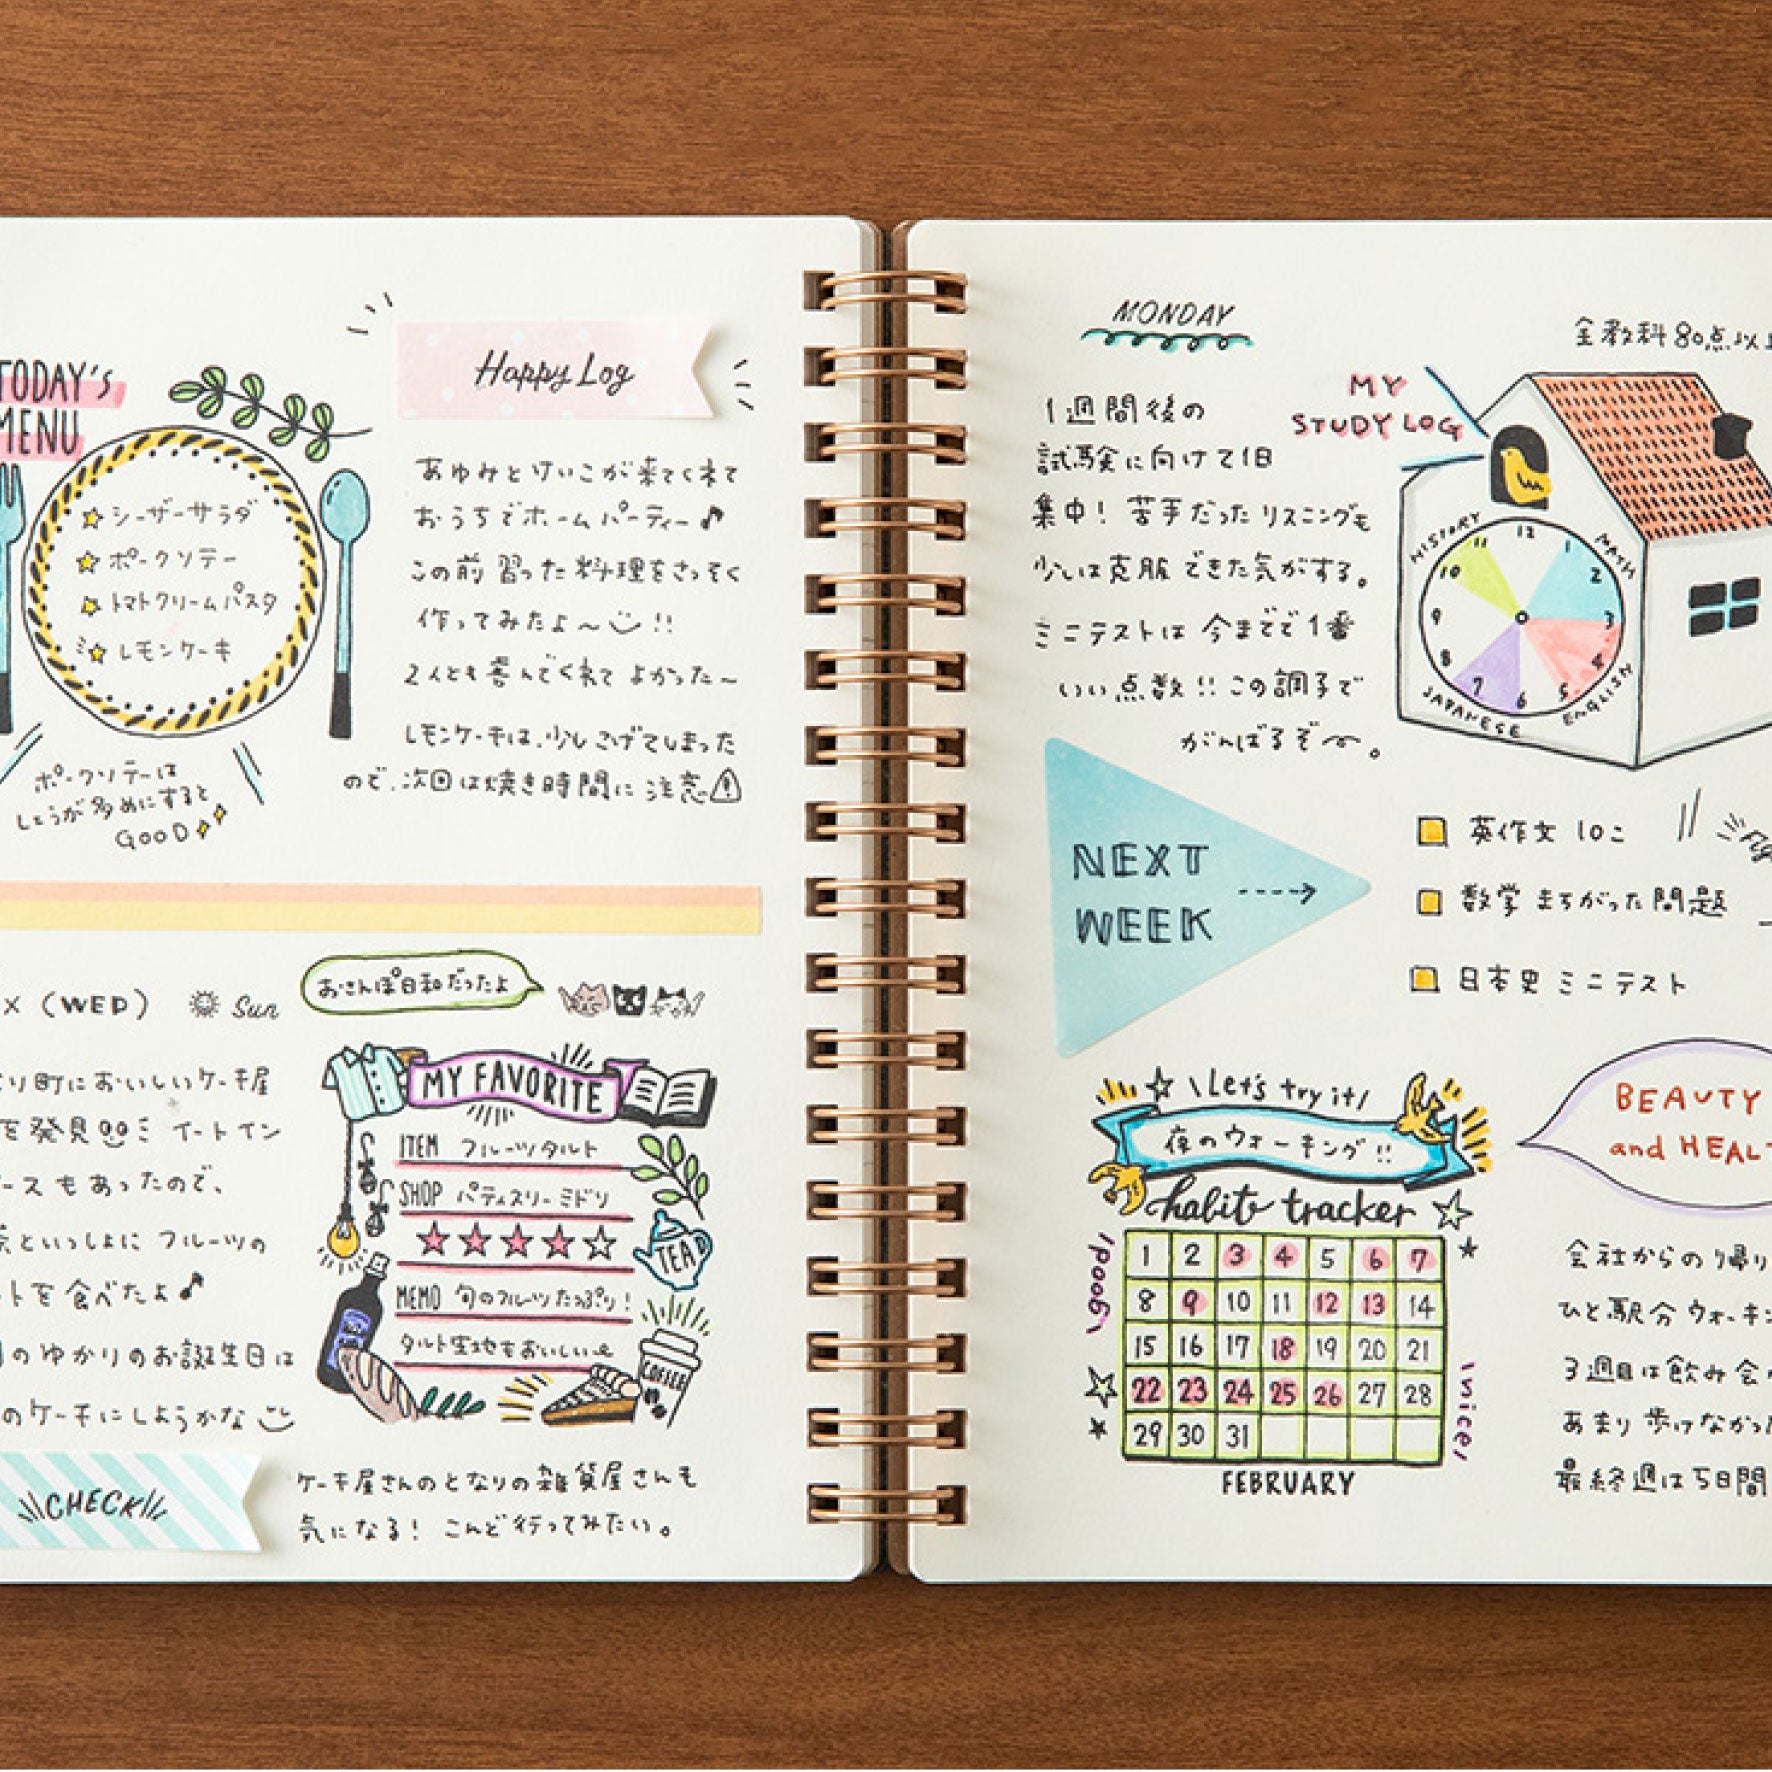 TODAY'S
MENU
シーザーサラダ
ポークソテー
トマトクリームパスタ
レモンケーキ
ポークソテーは
しょうが多めにすると
GOOD
Happy Log
あゆみとけいこが来てくれて
おうちでホームパーティー♪
この前習った料理をさっそく
作ってみたよ〜!!
2人とも喜んでくれてよかった〜
レモンケーキは、少しこげてしまった
ので、次回は焼き時間に注意
× (WED) Sun
おさんぽ日和だったよ
り町においしいケーキ屋
を発見 イートイン
ースもあったので、
茶といっしょにフルーツの
トを食べたよ♪
のゆかりのお誕生日は
のケーキにしようかな
MY FAVORITE
ITEM フルーツタルト
SHOP パティスリーミドリ
★★★★☆
TEA
MEMO 旬のフルーツたっぷり!
タルト生地もおいしい
COFFEE
CHECK
ケーキ屋さんのとなりの雑貨屋さんも
気になる! こんど行ってみたい。
MONDAY
1週間後の
試験に向けて1日
集中! 苦手だったリスニングも
少しは克服できた気がする。
ミニテストは今までで1番
いい点数!! この調子で
がんばるぞ〜。
MY
STUDY LOG
全教科80点以上
HISTORY
MATH
ENGLISH
JAPANESE
12
1
2
3
4
5
6
7
8
9
10
11
NEXT
WEEK
英作文10こ
数学まちがった問題
日本史ミニテスト
\Let's try it/
夜のウォーキング!!
habit tracker
1 2 3 4 5 6 7
8 9 10 11 12 13 14
15 16 17 18 19 20 21
22 23 24 25 26 27 28
29 30 31
FEBRUARY
\good/
\nice/
BEAUTY
and HEALT
会社からの帰り
ひと駅分ウォーキン
3週目は飲み会
あまり歩けなかった
最終週は5日間